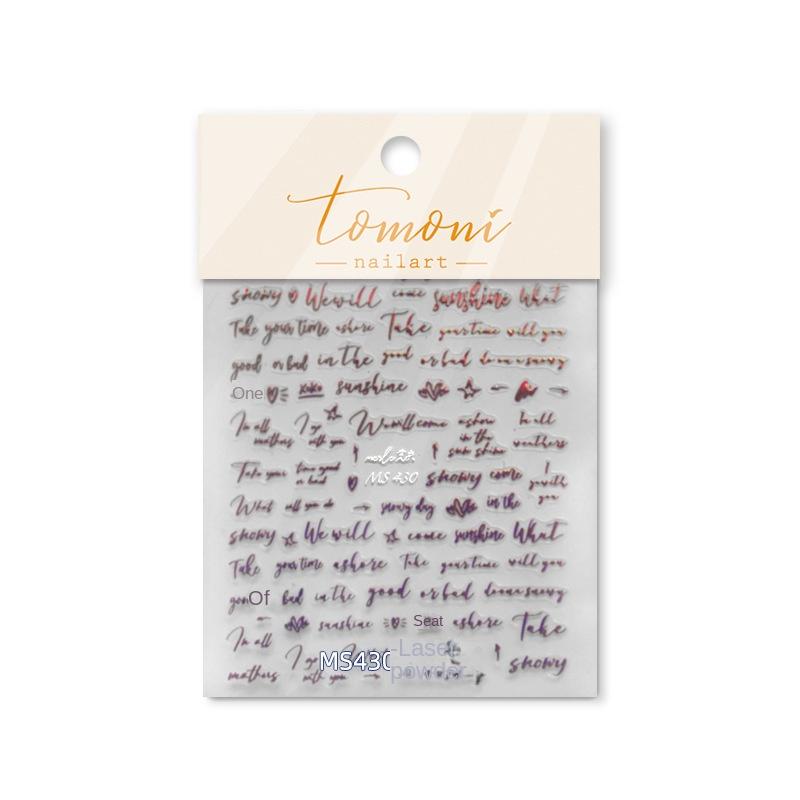 tomoni
nailart
snowy We will come sunshine What
Take your time ashore Take your time will you
good or bad in the good or bad
One xoxo sunshine
In all I go We will come ashow be all
mathers with you in the weathers
sun shine
MS 430
Take your time good snowy come I
or bad go with
you
What will you do snowy day in the
snowy We will come sunshine What
Take your time ashore Take your time will you
Of bad in the good or bad
sunshine Seat ashore Take
In all I go
MS430 -Laser
powder
mathers with you snowy